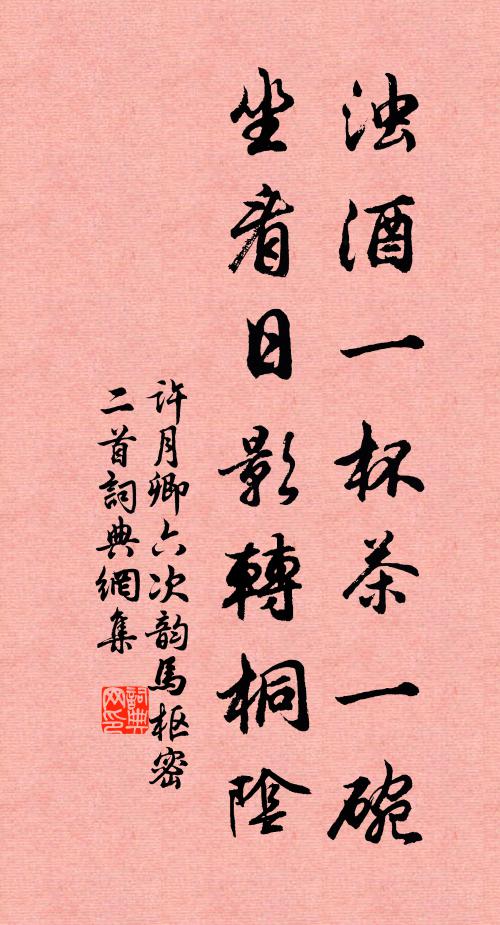 浊酒一杯茶一碗
坐看日影轉桐陰
許月卿六次韵馬枢密
二首詞典網集
詞典网印